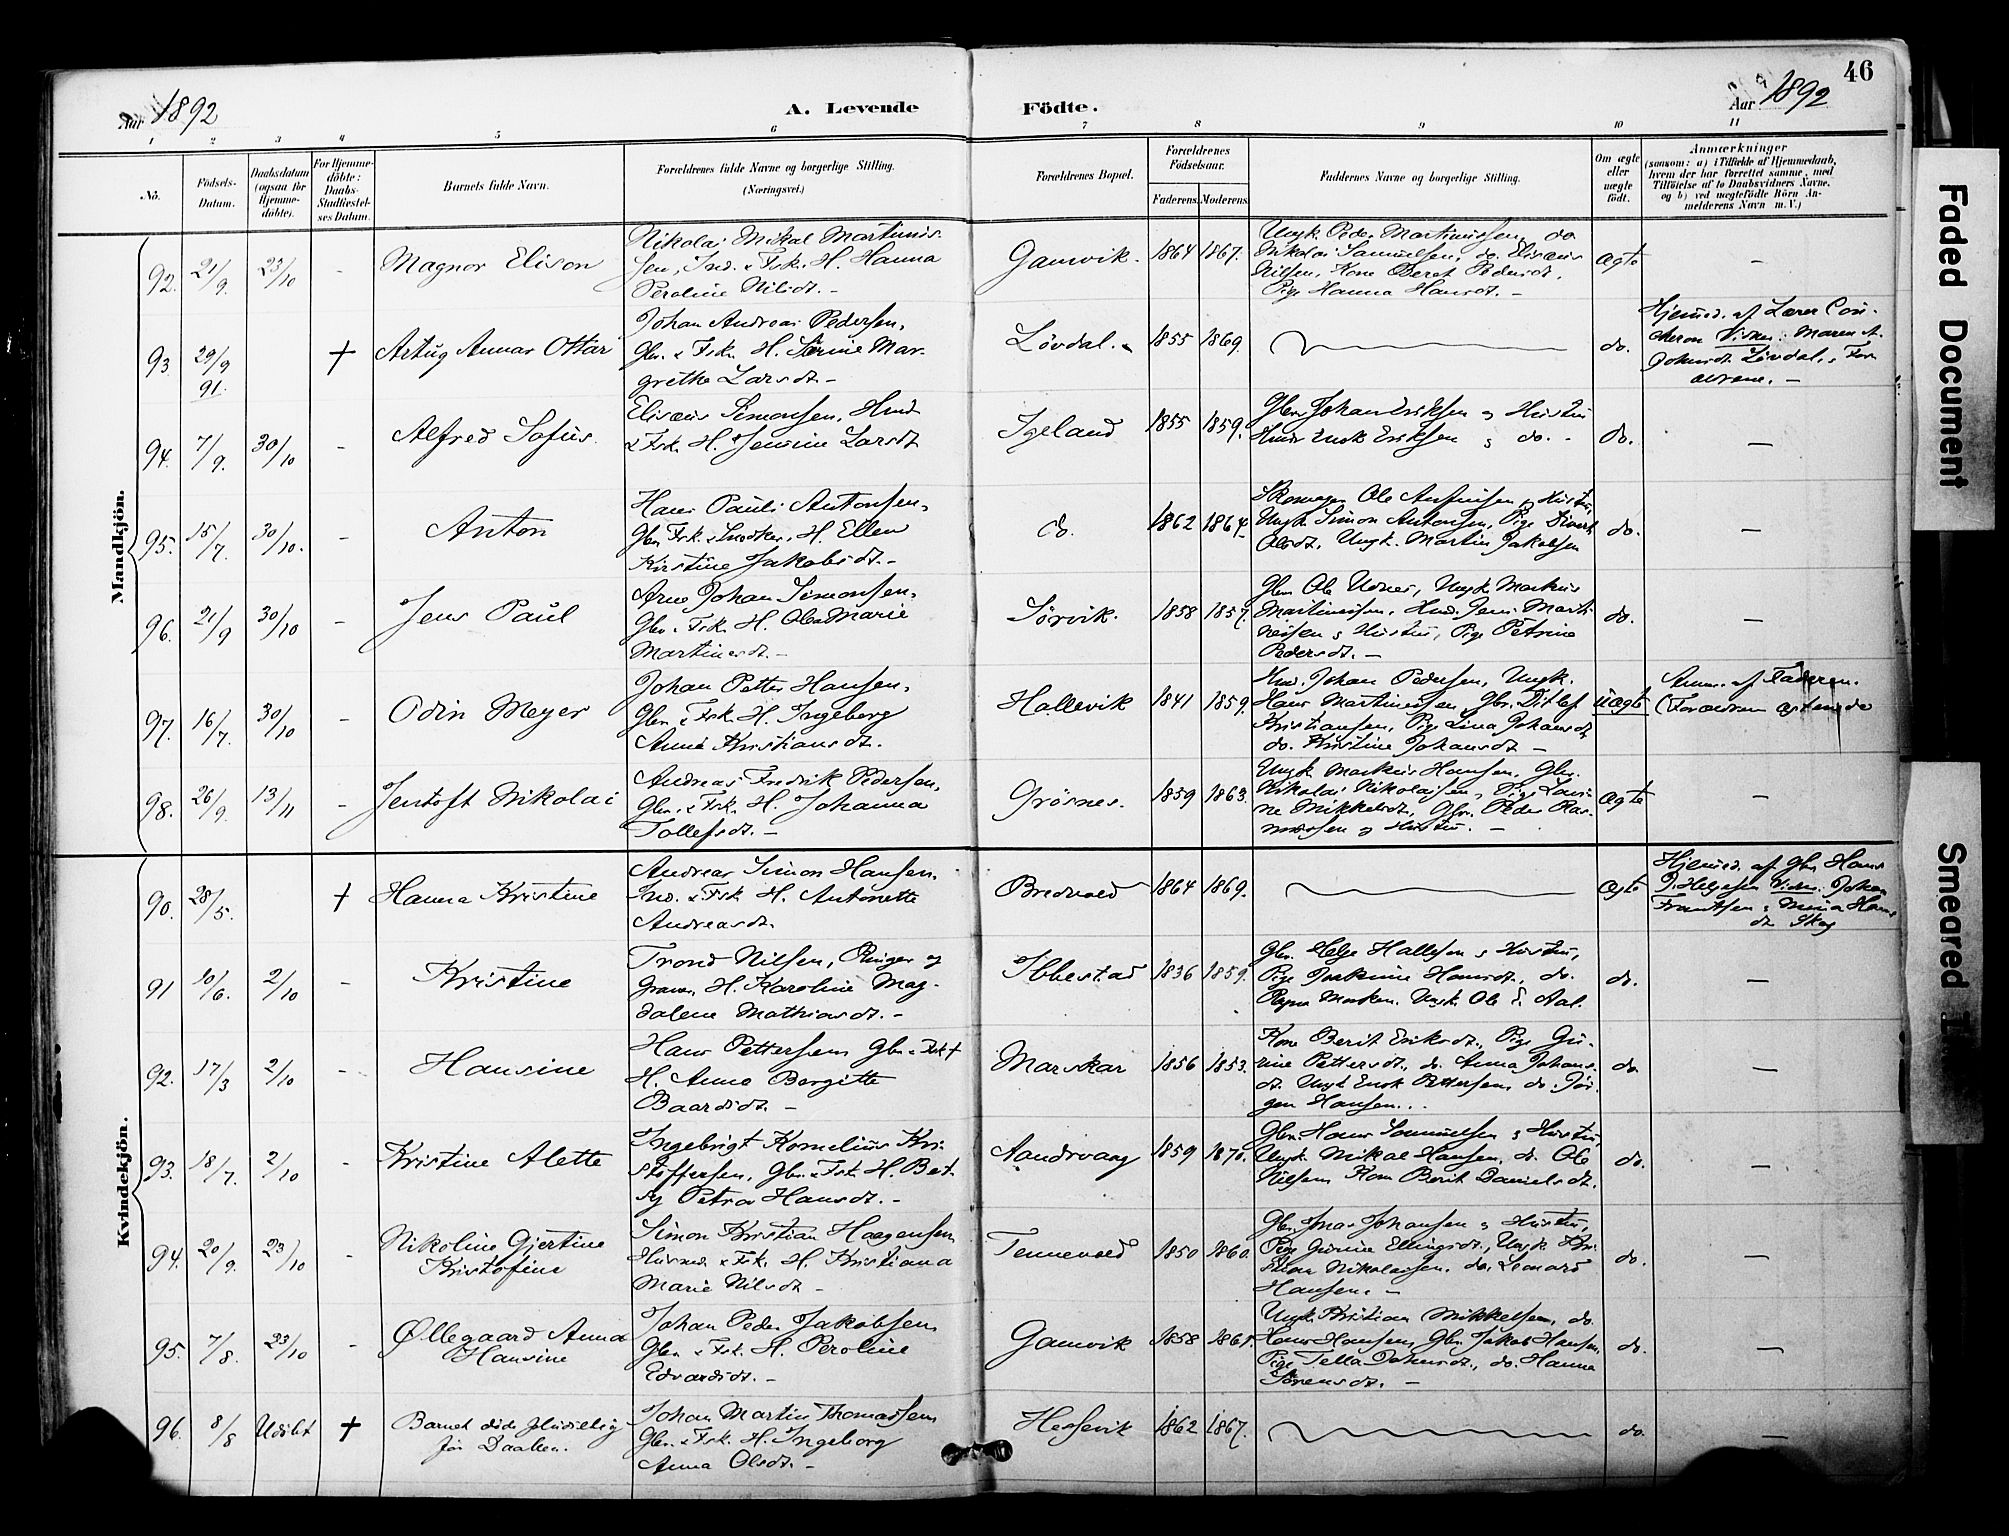 46
Aar 1892
A. Levende Födte.
Aar 1892
1 2 3 4 5 6 7 8 9 10 11
No.
Födsels-Datum.
Daabsdatum (ogsaa for Hjemme-döbte).
For Hjemme-döbte: Daabs-Stadfæstel-ses Datum.
Barnets fulde Navn.
Forældrenes fulde Navne og borgerlige Stilling.
(Næringsvei.)
Forældrenes Bopæl.
Forældrenes Födselsaar.
Faderens. Moderens.
Faddernes Navne og borgerlige Stilling.
Om ægte eller uægte födt.
Anmærkninger
(saasom: a) i Tilfælde af Hjemmedaab,
hvem der har forrettet samme, med
Tilföielse af to Daabsvidners Navne.
og b) ved uægtefödte Börn An-
melderens Navn m. V.)
Mandkjön.
92. 21/9. 23/10 - Magnor Elison
Nikolai Mikal Martinus-
sen, Ind. & Fsk. H. Hanna
Peroline Nilsdt. -
Gamvik. 1864 1867.
Ungk. Peder Martinussen, do
Nikolai Samuelsen, do. Elisæus
Nilsen, Kone Beret Pedersdt.
Pige Hanna Hansdt. -
ægte -
93. 29/9 91. † Artug Annar Ottar
Johan Andreas Pedersen,
Gbr. & Fsk. H. Serine Mar-
grethe Larsdt. -
Lövdal. 1855 1869.
do.
Hjemmed. af Lærer
Vidner: Maren A.
Johnsdt. Lövdal,
94. 7/9. 30/10 - Alfred Sofus.
Elisæus Simonsen, Hmd.
& Fsk. H. Jensine Larsdt
Igeland 1855 1859.
Gbr. Johan Eriksen & Hustru
Hmd. Enok Eriksen & do. -
do. -
95. 15/7. 30/10. - Anton
Hans Pauli Antonsen,
Gbr. Fsk. & Snedker, H. Ellen
Kirstine Jakobsdt. -
do. 1862 1864.
Ole & Hustru,
Ungk. Simon Antonsen, Pige
Olsdt. Ungk. Martin Jakobsen
do. -
96. 21/9 30/10 - Jens Paul
Arne Johan Simonsen,
Gbr. & Fsk. H. Olea Marie
Martinesdt. -
Sörvik. 1858 1857.
Gbr. Ole, Ungk. Markus
Martinussen, Hmd. Jens Marti-
nussen & Hustru, Pige Petrine
Pedersdt. -
do. -
97. 16/7. 30/10 - Odin Meyer
Johan Petter Hansen,
Gbr. & Fsk. H. Ingeberg
Anna Kristiansdt.
Hallevik 1841 1859.
Hmd. Johan Pedersen, Ungk.
Hans Martinussen, Gbr. Ditlef
Kristiansen, Pige Lina Johansdt
do. Kristine Johansdt -
uægte
Anm. af Faderen.
98. 26/9. 13/11 - Jentoft Nikolai
Andreas Fredrik Pedersen,
Gbr. & Fsk. H. Johanna
Tollefsdt. -
Grösnes. 1859 1863.
Ungk. Markus Hansen, Gbr.
Nikolai Nikolaisen, Pige Lovi-
ne Mikkelsdt, Gbr. Peder Ras-
mussen & Hustru. -
ægte -
Kvindekjön.
90. 28/5. † Hanna Kristine
Andreas Simon Hansen.
Ind. & Fsk. H. Antonette
Andreasdt.
Bredvold 1864 1869.
ægte
Hjemmed. af Gbr. Hans
J. Helgesen Vidn. Johan
Frantsen & Mina Hans-
dt. Skog
91 10/6. 2/10 - Kristine
Trond Nilsen, Ringer og
Graver, H. Karoline Mag-
dalene Mathiasdt. -
Ibbestad 1836 1859.
Gbr. Helge Hallesen & Hustru,
Pige Joakime Hansdt., do.
Ragna Marken. Ungk. Ole
do. -
92. 17/3 2/10 - Hansine
Hans Pettersen Gbr. & Fsk †
H. Anne Bergitte
Baardsdt. -
Marskar 1856 1853.
Kone Berit Eriksdt., Pige Gu-
rine Pettersdt., do. Anna Johans-
dt. Ungk. Enok Pettersen, do. Jör-
gen Hansen..
do. -
93. 18/7. 2/10 - Kristine Alette
Ingebrigt Kornelius Kri-
stoffersen, Gbr. & Fsk. H. Bet-
sy Petra Hansdt. -
Aandvaag 1859 1870.
Gbr. Hans Samuelsen & Hustru
Ungk. Mikal Hansen, do. Ole
Nilsen, Kone Berit Danielsdt.
do. -
94. 20/9. 23/10 - Nikoline Gjertine
Kristofine
Simon Kristian Haagensen
Husmd. & Fsk. H. Kristiana
Marie Nilsdt -
Tennevold 1850 1860.
Gbr. Jonas Johansen & Hustru,
Pige Gurine Ellingsdt., Ungk. Kri-
stian Nikolaisen, do. Lenard
Hansen. -
do. -
95. 7/8. 23/10 - Øllegaard Anna
Hansine
Johan Peder Jakobsen
Gbr. & Fsk. H. Peroline
Edvardsdt. -
Gamvik 1858 1861.
Ungk. Kristian Mikkelsen, do.
Hans Hansen, Gbr. Jakob Hansen,
Pige Tella Johnsdt., do. Hanna
Sörensdt. -
do. -
96. 8/8 Udöbt † Barnet döde pludselig
för Daaben.
Johan Martin Thomassen
Gbr. & Fsk. H. Ingeborg
Anna Olsdt. -
Hessevik 1862 1867.
do. -
Faded Document
Smeared